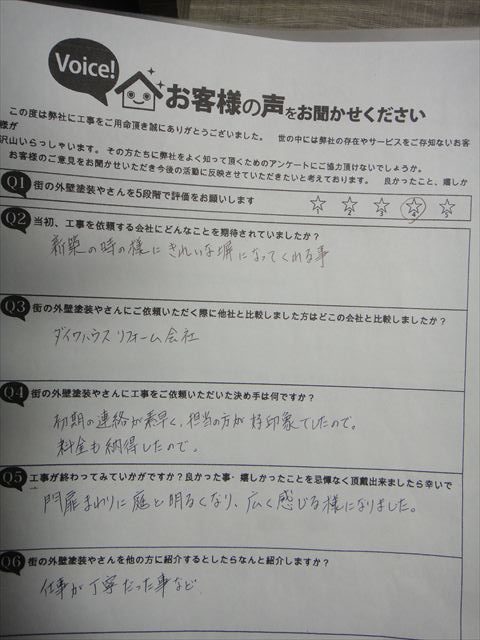 Voice!
お客様の声をお聞かせください
この度は弊社に工事をご用命頂き誠にありがとうございました。 世の中には弊社の存在やサービスをご存知ないお客
様が
沢山いらっしゃいます。その方たちに弊社をよく知って頂くためのアンケートにご協力頂けないでしょうか。
お客様のご意見をお聞かせいただき今後の活動に反映させていただきたいと考えております。 良かったこと、嬉しか
Q1 街の外壁塗装やさんを5段階で評価をお願いします
1 2 3 4 5
Q2 当初、工事を依頼する会社にどんなことを期待されていましたか?
新築の時の様にきれいな塀になってくれる事
Q3 街の外壁塗装やさんにご依頼いただく際に他社と比較しました方はどこの会社と比較しましたか?
ダイワハウスリフォーム会社
Q4 街の外壁塗装やさんに工事をご依頼いただいた決め手は何ですか?
初期の連絡が素早く、担当の方が好印象でしたので。
料金も納得したので。
Q5 工事が終わってみていかがですか?良かった事・嬉しかったことを忌憚なく頂戴出来ましたら幸いで
門扉まわりに庭と明るくなり、広く感じる様になりました。
Q6 街の外壁塗装やさんを他の方に紹介するとしたらなんと紹介しますか?
仕事が丁寧だった事など